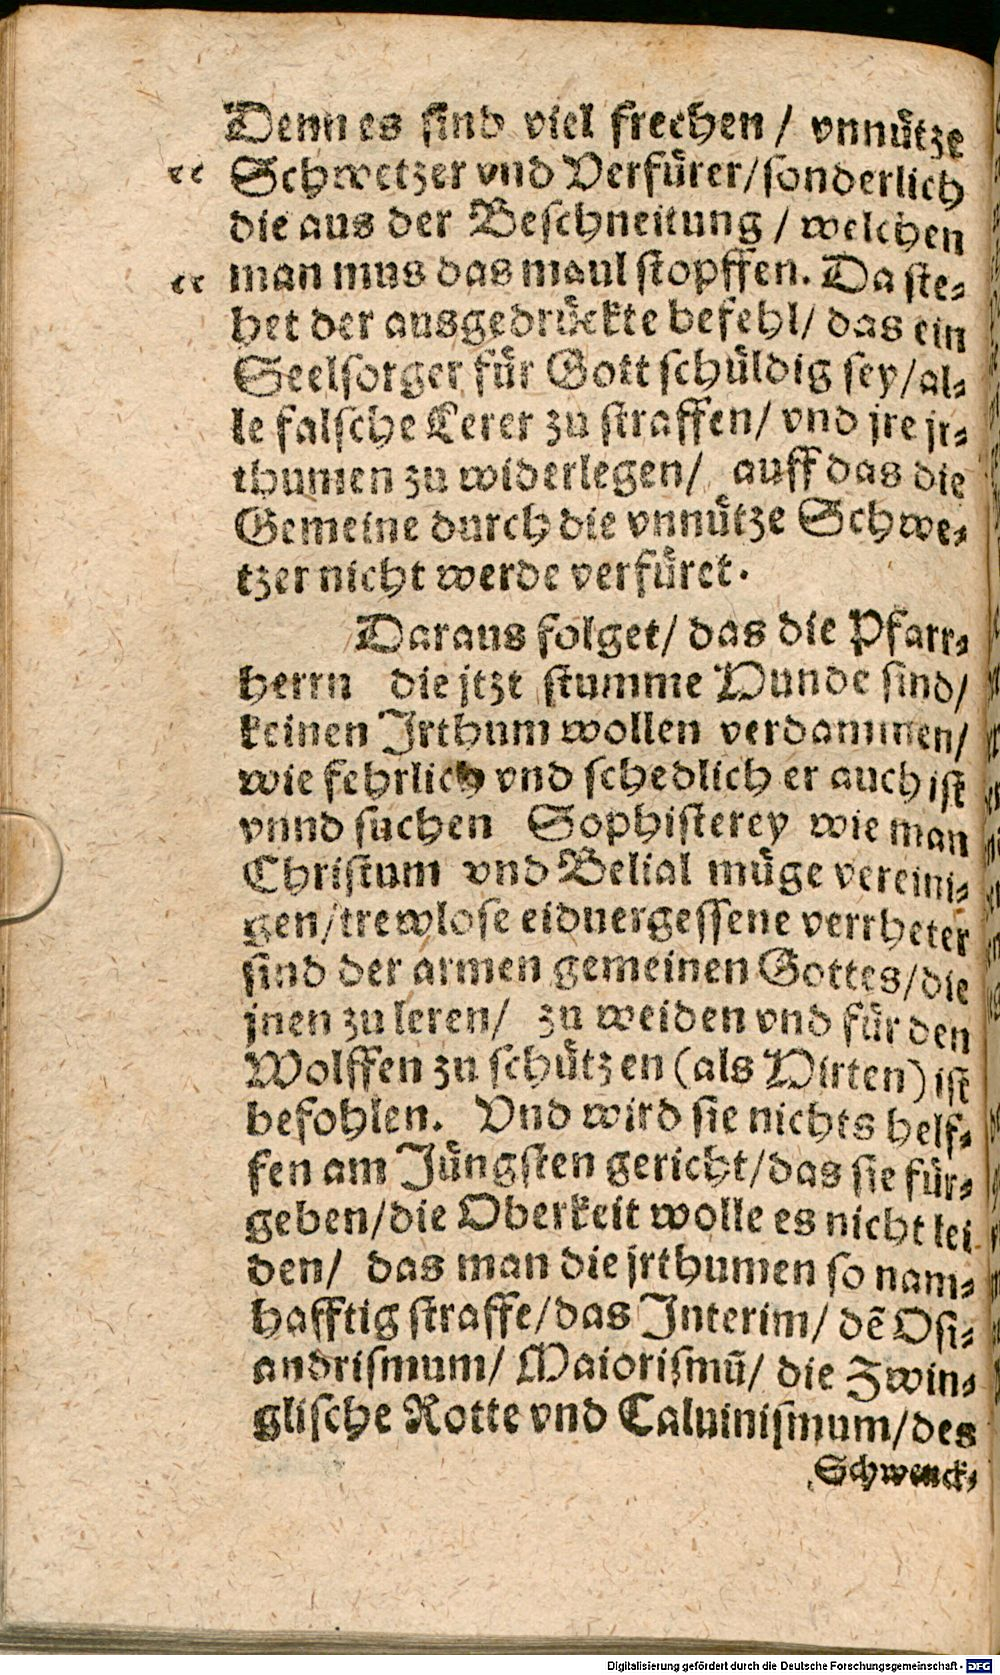 Denn es sind viel frechen / vnnütze
Schwetzer vnd Verfürer/sonderlich
die aus der Beschneitung / welchen
man mus das maul stopffen. Da ste-
het der ausgedrückte befehl/ das ein
Seelsorger für Gott schüldig sey/al-
le falsche Lerer zu straffen/ vnd jre jr-
thumen zu widerlegen/ auff das die
Gemeine durch die vnnütze Schwe-
tzer nicht werde verfüret.
Daraus folget/ das die Pfarr-
herrn die jtzt stumme Hunde sind/
keinen Irthum wollen verdammen/
wie fehrlich vnd schedlich er auch ist
vnnd suchen Sophisterey wie man
Christum vnd Belial müge vereini-
gen/trewlose eiduergessene verrheter
sind der armen gemeinen Gottes/die
jnen zu leren/ zu weiden vnd für den
Wolffen zu schützen (als Hirten) ist
befohlen. Vnd wird sie nichts helf-
fen am Jüngsten gericht/das sie für-
geben/die Oberkeit wolle es nicht lei
den/ das man die jrthumen so nam-
hafftig straffe/das Interim/ dẽ Osi-
andrismum/ Maiorismũ/ die Zwin-
glische Rotte vnd Caluinismum/des
Schwenck-
Digitalisierung gefördert durch die Deutsche Forschungsgemeinschaft - DFG